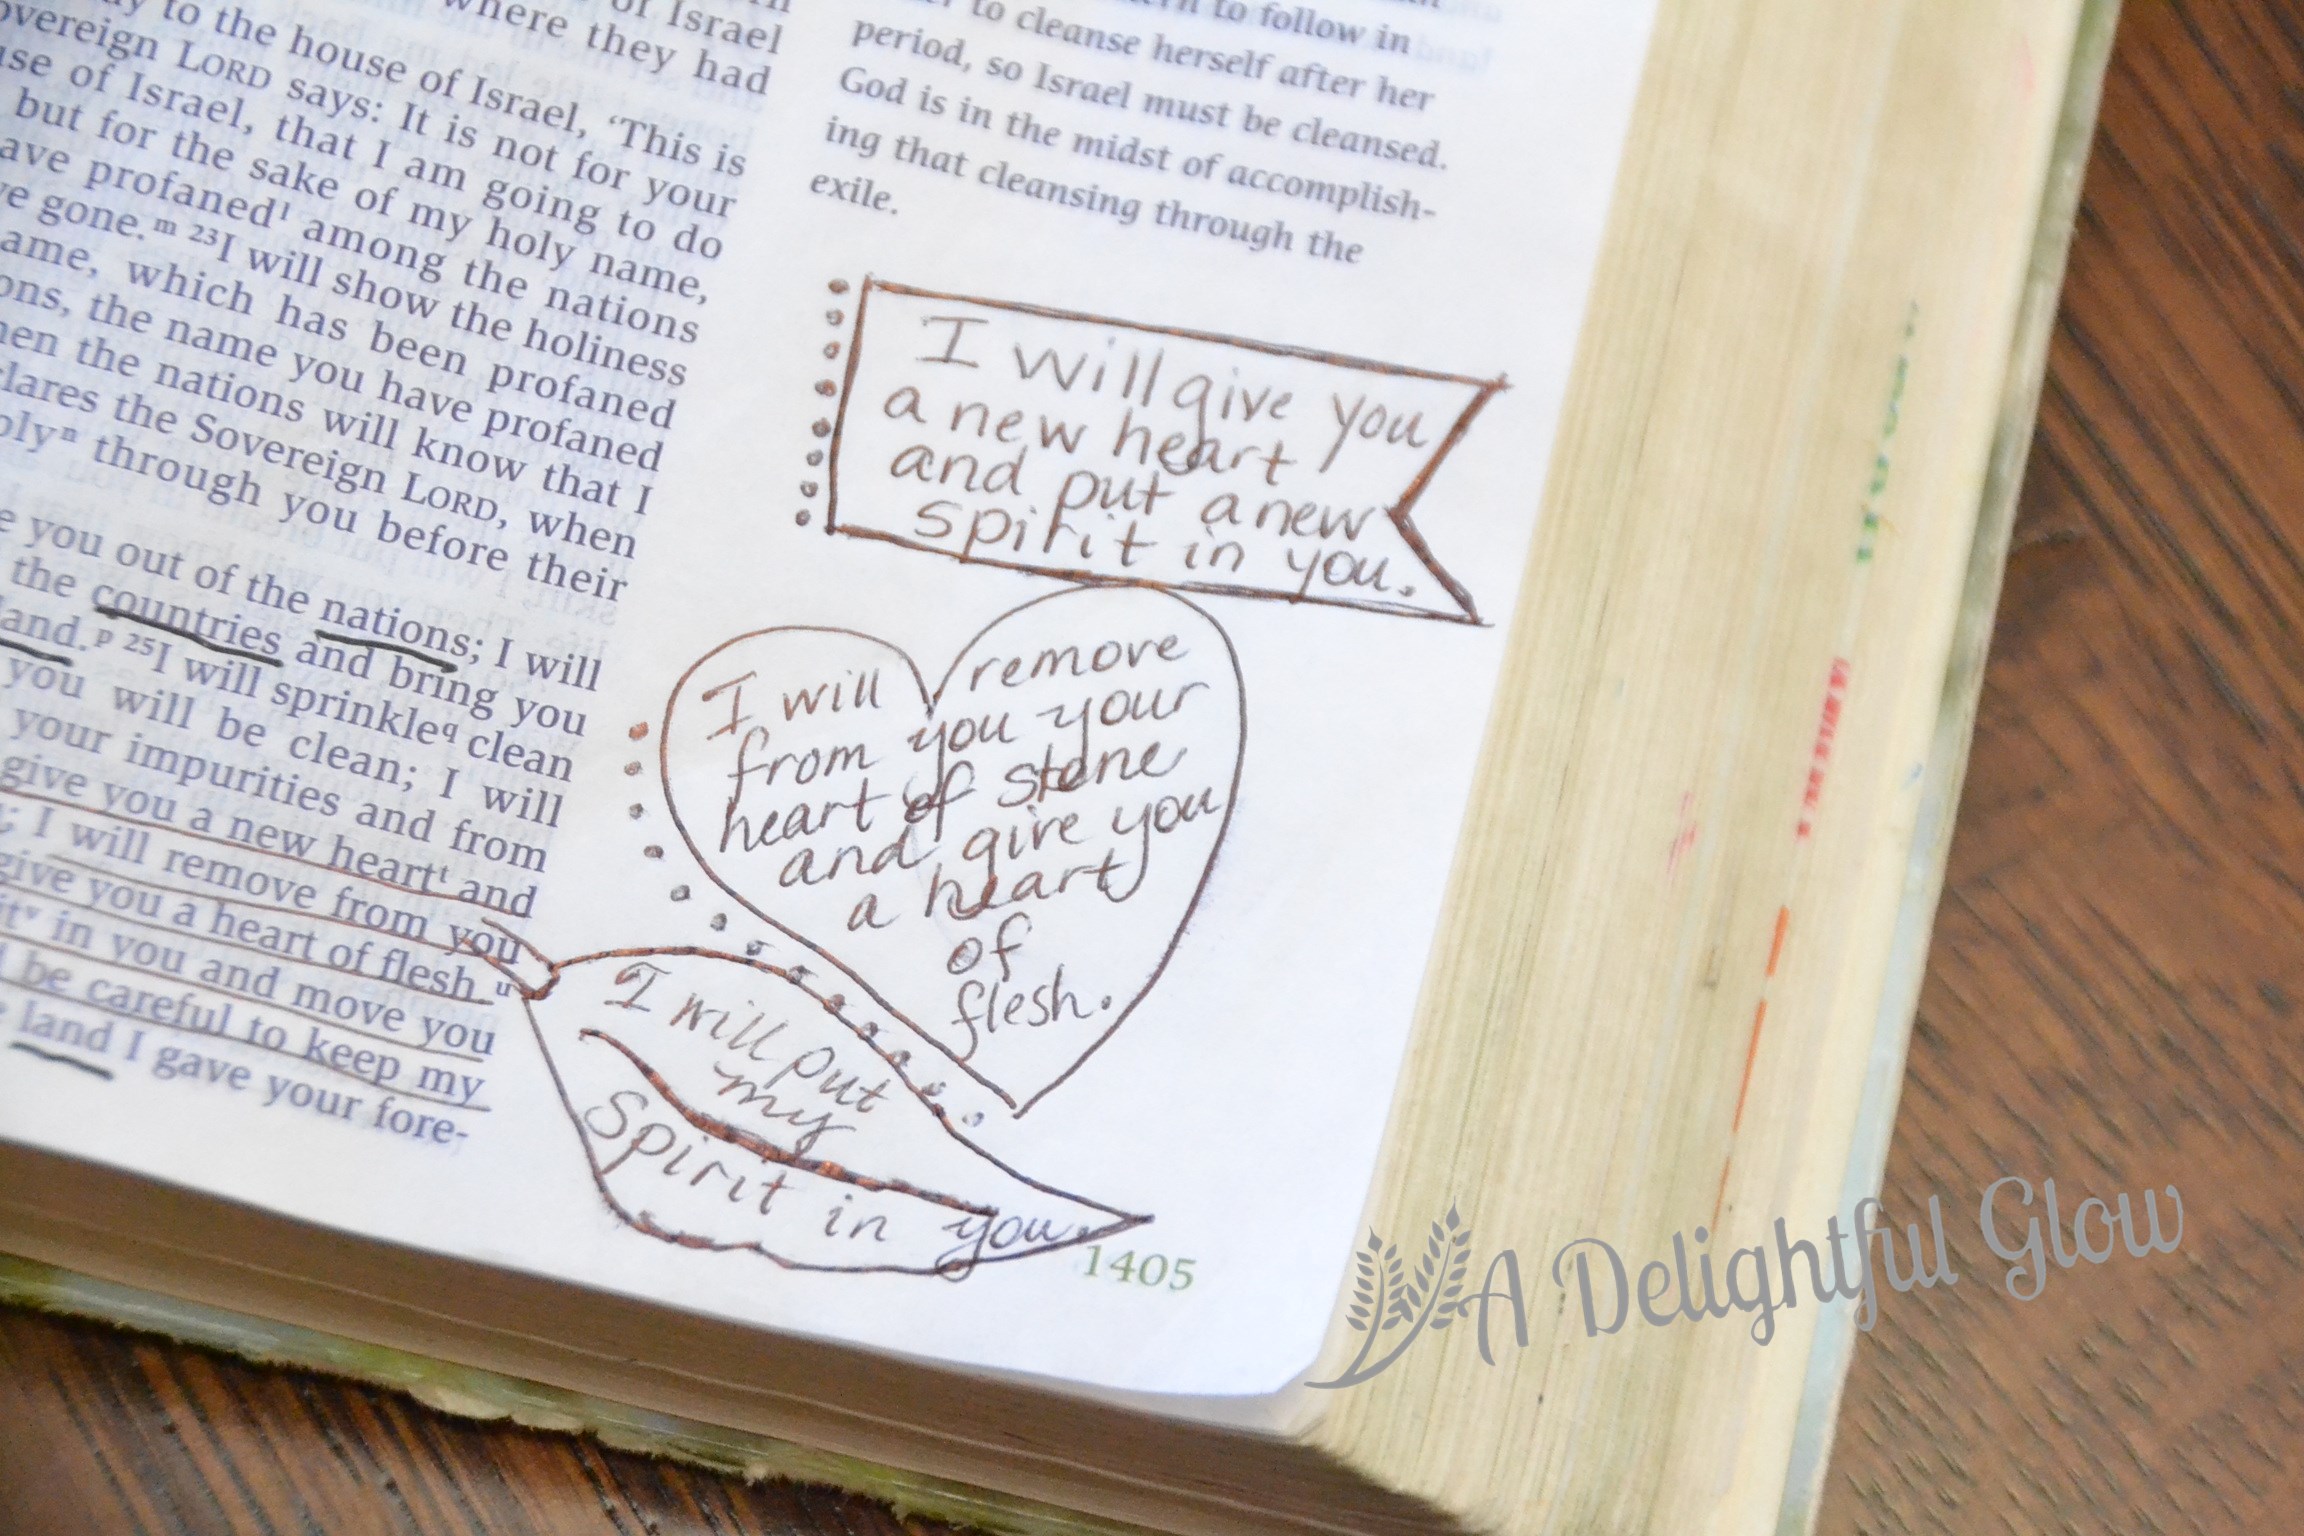 of Israel
where they had
to the house of Israel, ‘This is
overeign LORD says: It is not for your
of Israel, that I am going to do
but for the sake of my holy name,
profaned among the nations
gone.ᵐ ²³I will show the holiness
which has been profaned
the name you have profaned
the nations will know that I
the Sovereign LORD, when
through you before their
you out of the nations; I will
the countries and bring you
ᵖ ²⁵I will sprinkle۹ clean
you will be clean; I will
your impurities and from
give you a new heartᵗ and
I will remove from you
give you a heart of flesh.ᵘ
in you and move you
be careful to keep my
land I gave your fore-
to follow in
to cleanse herself after her
period, so Israel must be cleansed.
God is in the midst of accomplish-
ing that cleansing through the
exile.
I will give you
a new heart
and put a new
spirit in you.
I will remove
from you your
heart of stone
and give you
a heart
of
flesh.
I will put
my
Spirit in you.
1405
A Delightful Glow